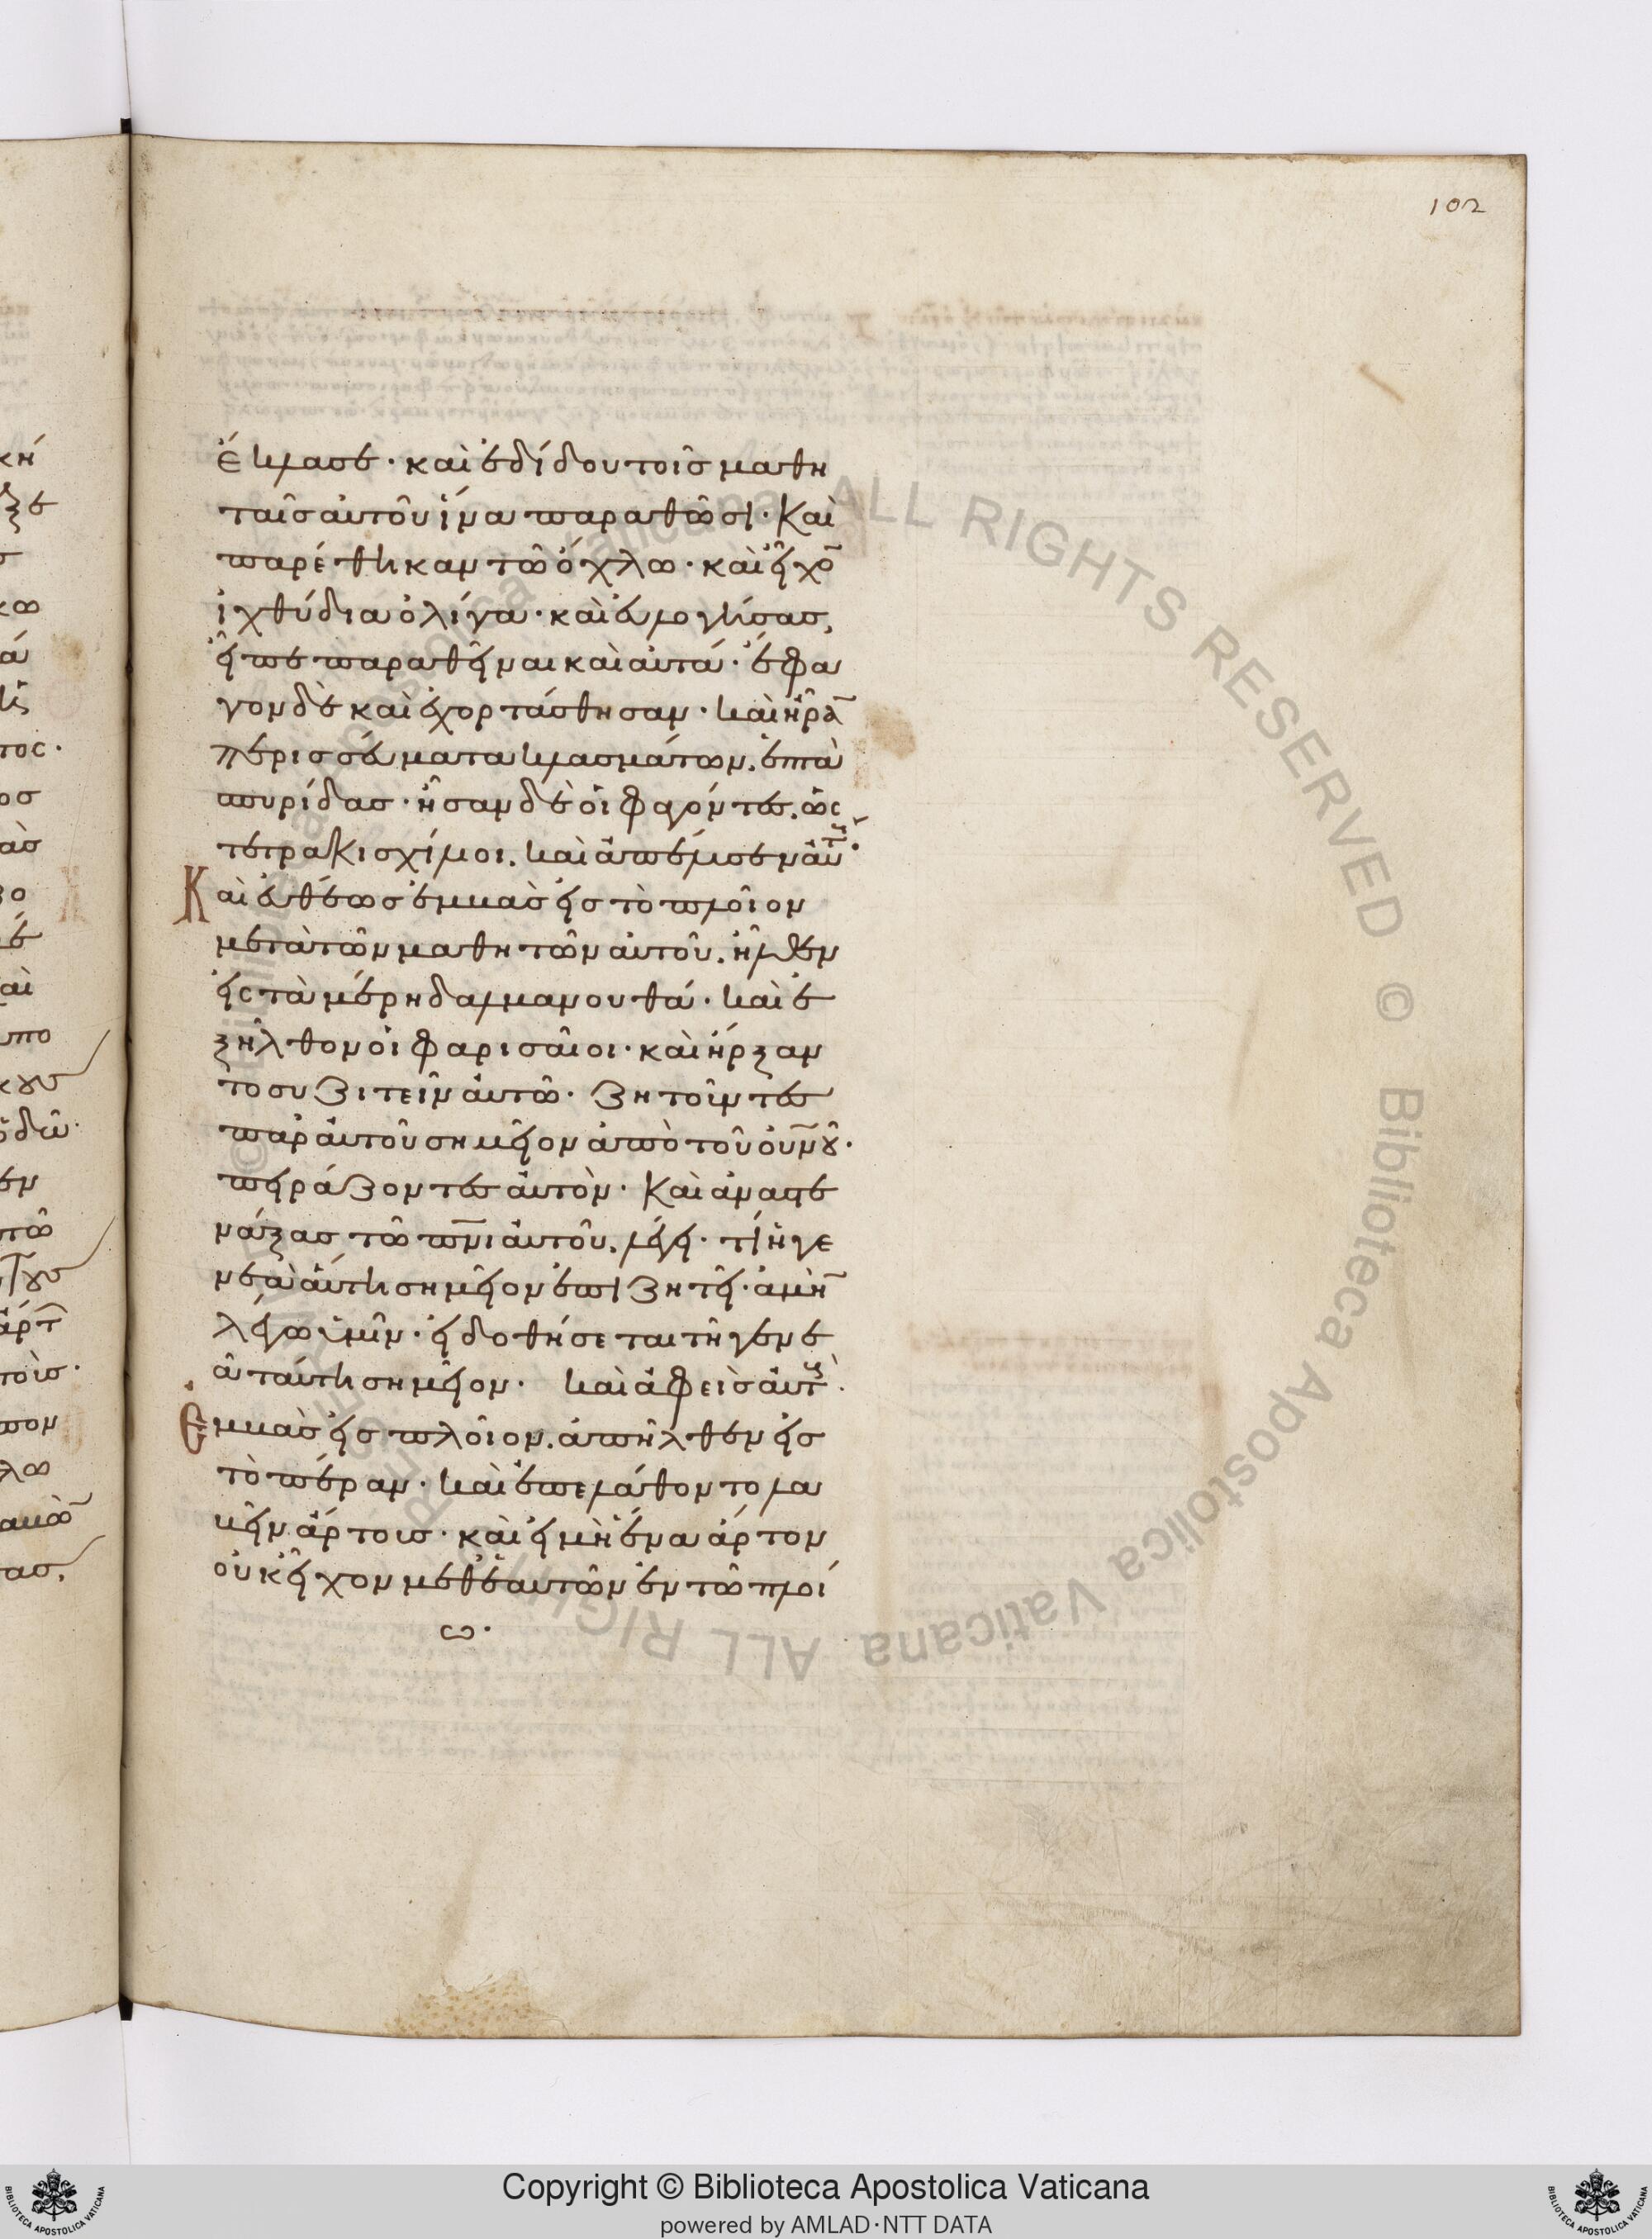 102
ἔκλασε· καὶ ἐδίδου τοῖς μαθη
ταῖς αὐτοῦ ἵνα παραθῶσι· Καὶ
παρέθηκαν τῶ ὄχλω· καὶ εἶχο̅
ἰχθύδια ὀλίγα· καὶ εὐλογήσας,
εἶπε παραθεῖναι καὶ αὐτά· ἔφα
γον δὲ καὶ ἐχορτάσθησαν· καὶ ἦρα̅
περισσεύματα κλασμάτων. ἑπτὰ
σπυρίδας· ἦσαν δὲ οἱ φαγόντες. ὡς
τετρακισχίλιοι. καὶ ἀπέλυσεν αὐτ·
Καὶ εὐθέως ἐμβὰς εἰς τὸ πλοῖον
μετὰ τῶν μαθητῶν αὐτοῦ. ἦλθεν
εἰς τὰ μέρη δαλμανουθά· καὶ ἐ
ξῆλθον οἱ φαρισαῖοι· καὶ ἤρξαν
το συζιτεῖν αὐτῶ· ζητοῦντες
παρ αὐτοῦ σημεῖον ἀπὸ τοῦ οὐ̅νοῦ·
πειράζοντες αὐτὸν· Καὶ ἀναστε
νάξας τῶ π̅νι αὐτοῦ. λέγει· τί ἡ γε
νεὰ αὕτη σημεῖον ἐπιζητεῖ· ἀμὴ̅
λέγω ὑμῖν· εἰ δοθήσεται τῆ γενε
ᾶ ταύτη σημεῖον· καὶ ἀφεὶς αὐτ·
Ἐμβὰς εἰς πλοῖον. ἀπῆλθεν εἰς
τὸ πέραν· καὶ ἐπελάθοντο λα
βεῖν ἄρτους· καὶ εἰ μὴ ἕνα ἄρτον
οὐκ εἶχον μεθ ἑαυτῶν ἐν τῶ πλοί
ω·
ALL RIGHTS RESERVED © Biblioteca Apostolica Vaticana
Copyright © Biblioteca Apostolica Vaticana
powered by AMLAD·NTT DATA
BIBLIOTECA APOSTOLICA VATICANA
BIBLIOTECA APOSTOLICA VATICANA